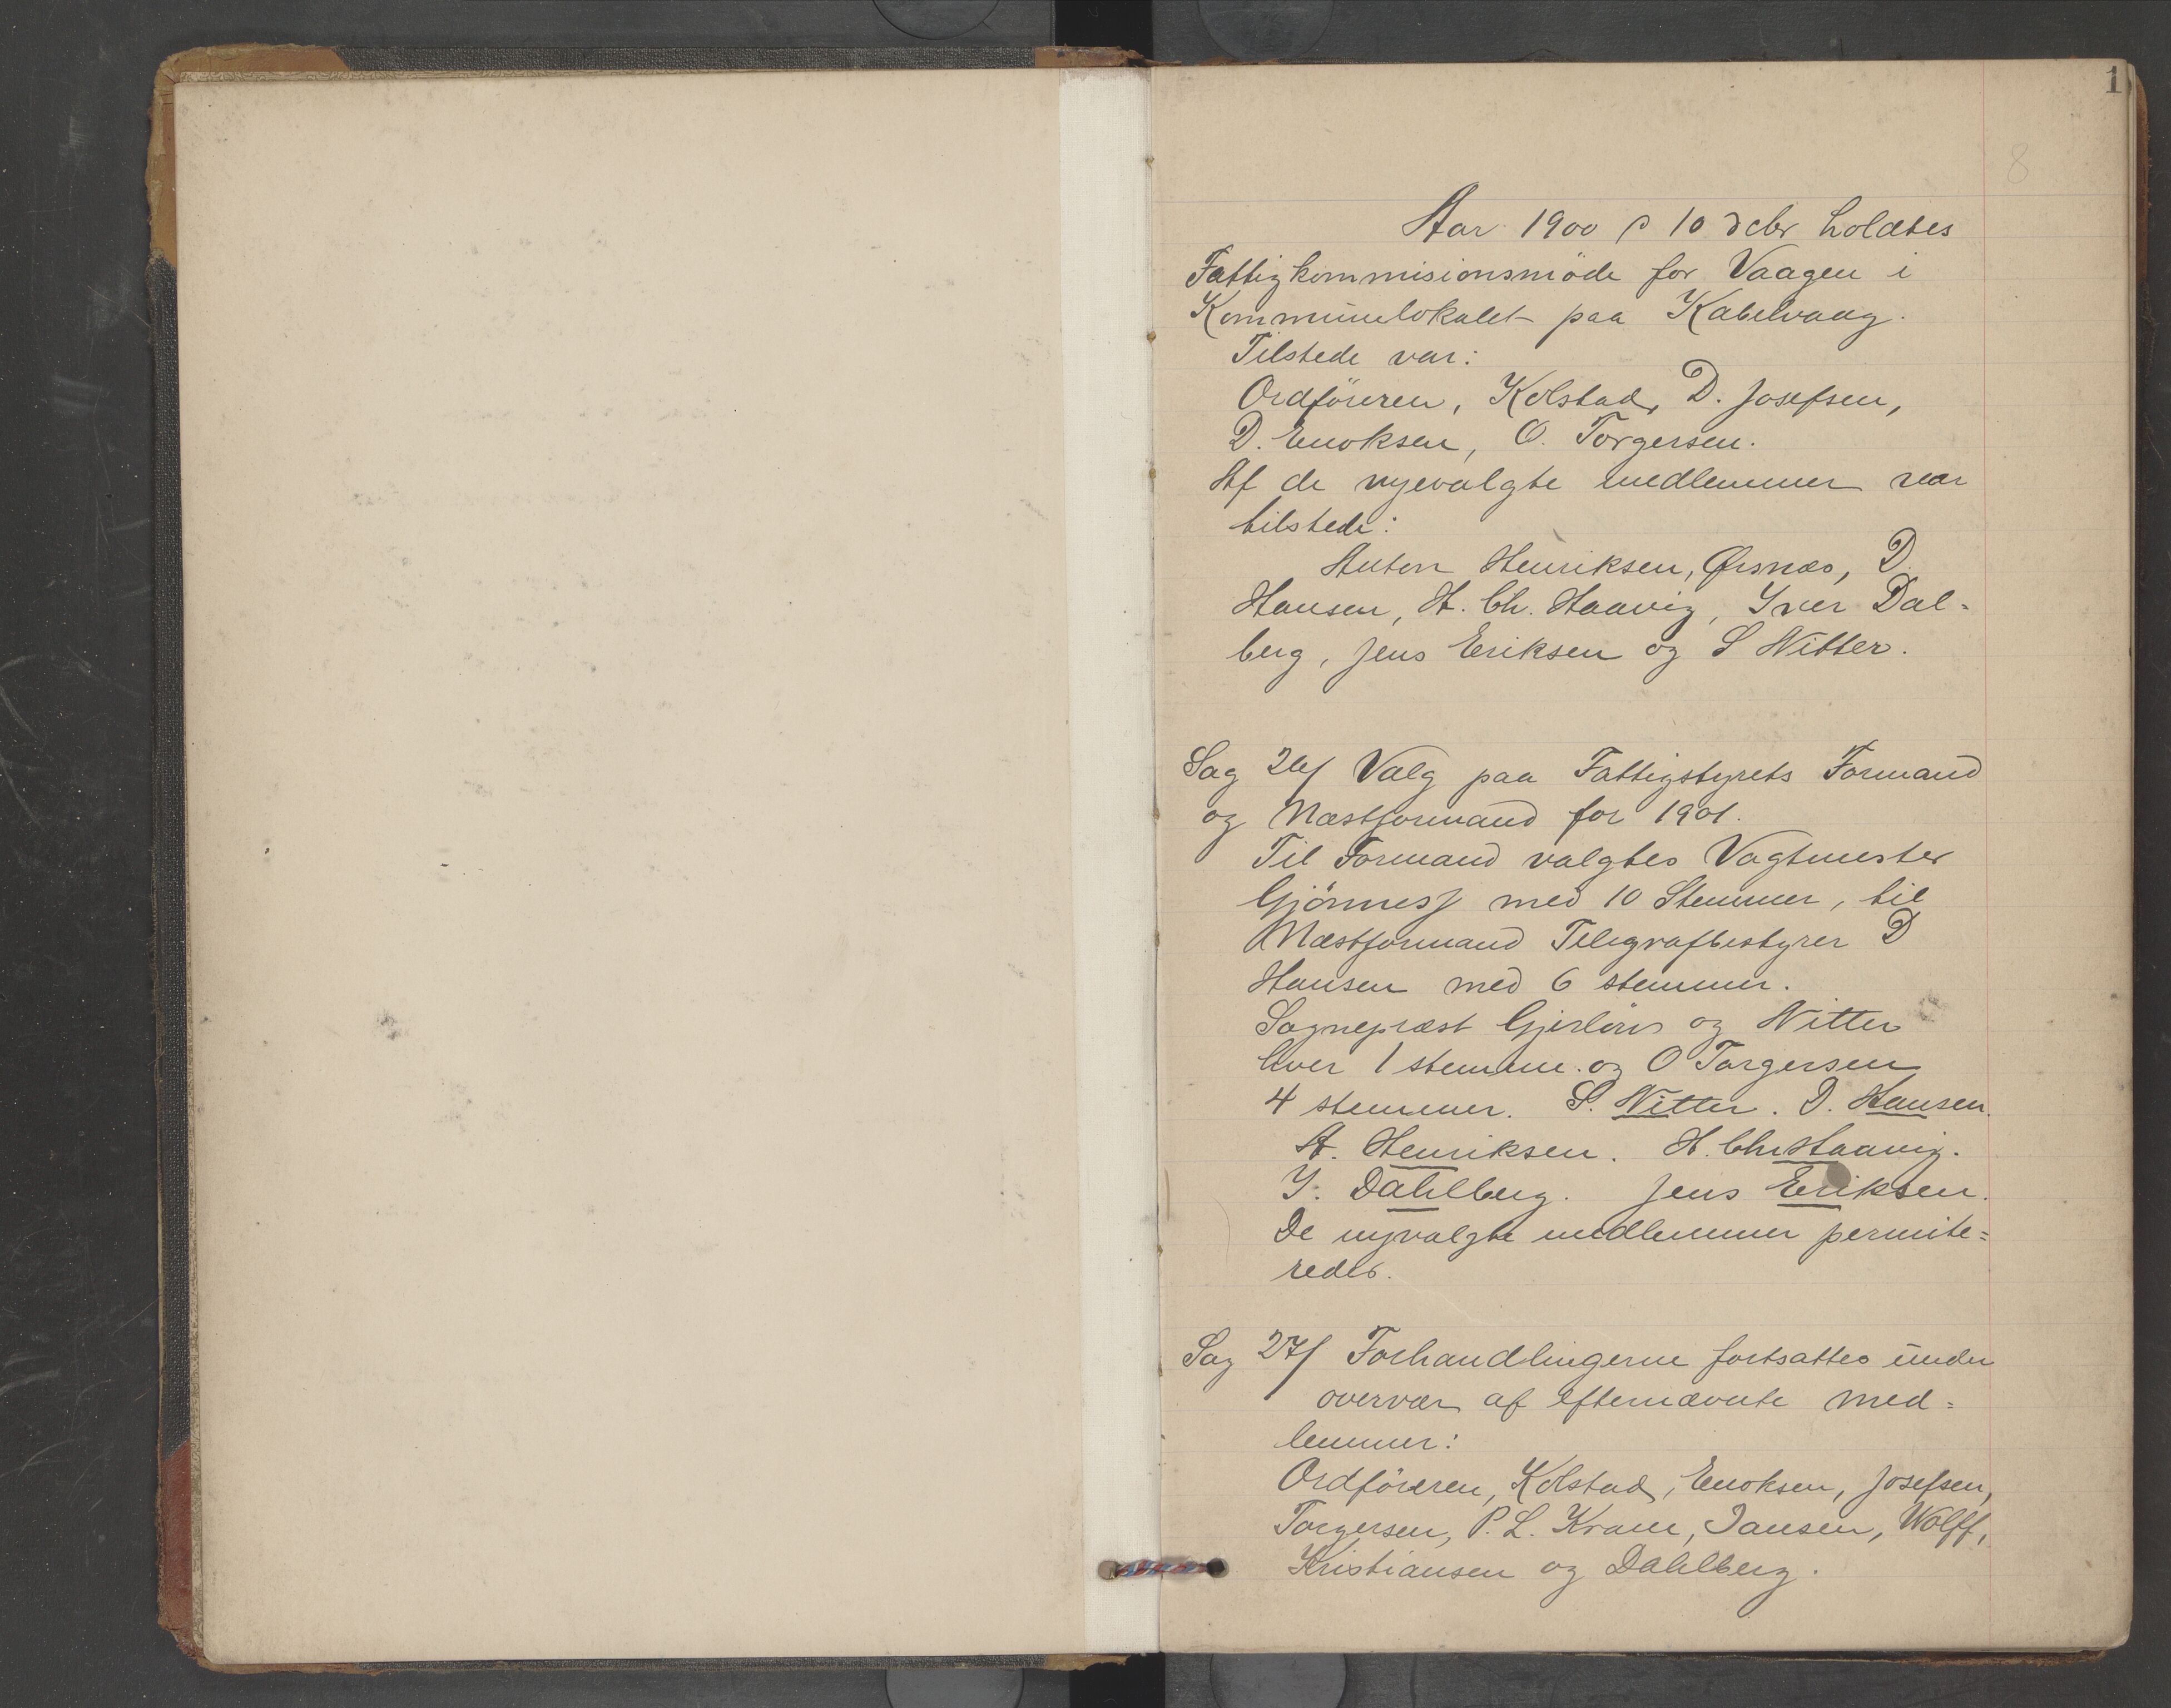 1
8
Aar 1900 d 10 dcbr holdtes
Fattigkommisionsmöde for Vaagen i
Kommunelokalet paa Kabelvaag.
Tilstede var:
Ordföreren, Kolstad, D. Josefsen,
D. Enoksen, O. Torgersen.
Af de nyevalgte medlemmer var
tilstede:
Anton Henriksen, Ørsnæs, D.
Hansen, H. Ch. Haavig, Iver Dal-
berg, Jens Eriksen og S Witter.
Sag 26/ Valg paa Fattigstyrets Formand
og Næstformand for 1901.
Til Formand valgtes Vagtmester
med 10 Stemmer, til
Næstformand Telegrafbestyrer D
Hansen med 6 stemmer.
Sognepræst og Witter
hver 1 stemme og O Torgersen
4 stemmer. S. Witter. D. Hansen.
A. Henriksen. H. Chr Haavig.
I. Dahlberg. Jens Eriksen.
De nyvalgte medlemmer permite=
redes.
Sag 27/ Forhandlingerne fortsattes under
overvær af efternævnte med=
lemmer:
Ordföreren, Kolstad, Enoksen, Josefsen,
Torgersen, P. L. Krane, Jansen, Wolff,
Kristiansen og Dahlberg.